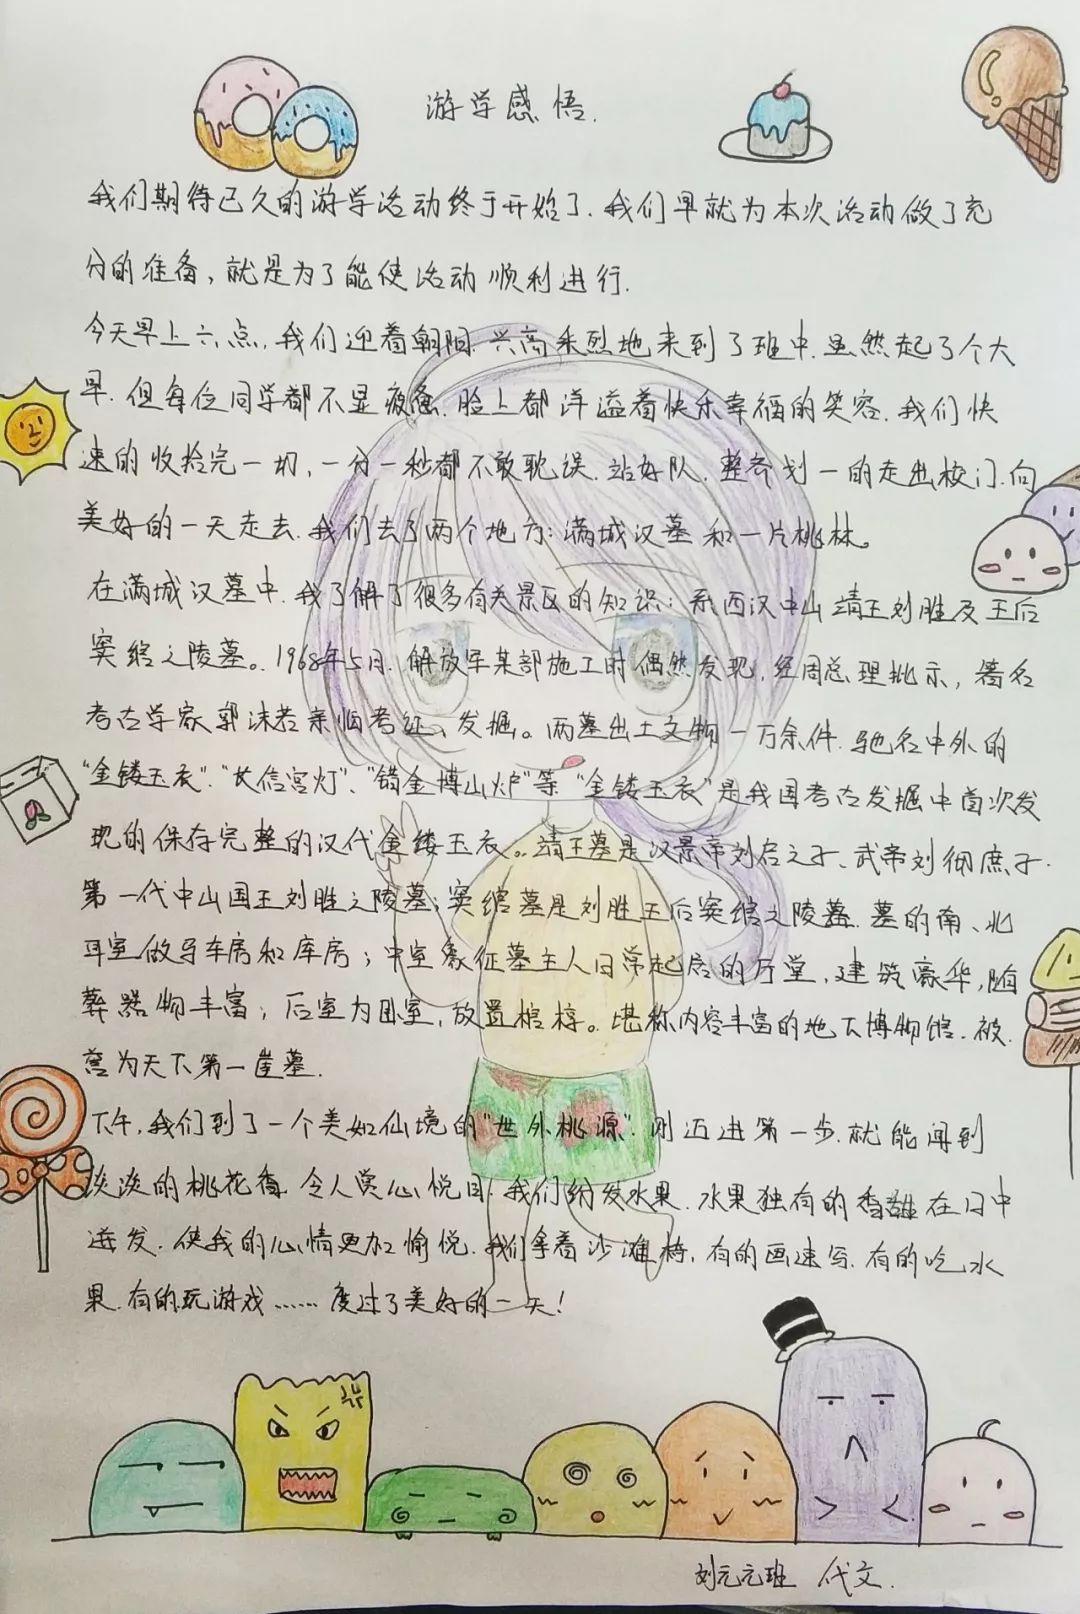 游学感悟.
我们期待已久的游学活动终于开始了.我们早就为本次活动做了充
分的准备,就是为了能使活动顺利进行.
今天早上六点,我们迎着朝阳.兴高采烈地来到了班中.虽然起了个大
早.但每位同学都不显疲惫.脸上都洋溢着快乐幸福的笑容.我们快
速的收拾完一切,一分一秒都不敢耽误.站好队.整齐划一的走出校门.向
美好的一天走去.我们去了两个地方:满城汉墓和一片桃林。
在满城汉墓中.我了解了很多有关景区的知识:系西汉中山靖王刘胜及王后
窦绾之陵墓。1968年5月.解放军某部施工时偶然发现,经周总理批示,著名
考古学家郭沫若亲临考证、发掘。两墓出土文物一万余件.驰名中外的
“金镂玉衣”、“长信宫灯”、“错金博山炉”等“金镂玉衣”是我国考古发掘中首次发
现的保存完整的汉代金镂玉衣。靖王墓是汉景帝刘启之子、武帝刘彻庶子.
第一代中山国王刘胜之陵墓;窦绾墓是刘胜王后窦绾之陵墓.墓的南、北
耳室做马车房和库房;中室象征墓主人日常起居的厅堂,建筑豪华,随
葬器物丰富;后室为卧室,放置棺椁。堪称内容丰富的地下博物馆.被.
誉为天下第一崖墓.
下午,我们到了一个美如仙境的“世外桃源”.刚迈进第一步.就能闻到
淡淡的桃花香.令人赏心悦目.我们纷发水果.水果独有的香甜在口中
迸发.使我的心情更加愉悦.我们拿着沙滩椅,有的画速写.有的吃水
果.有的玩游戏……度过了美好的一天!
刘元元班 代文.